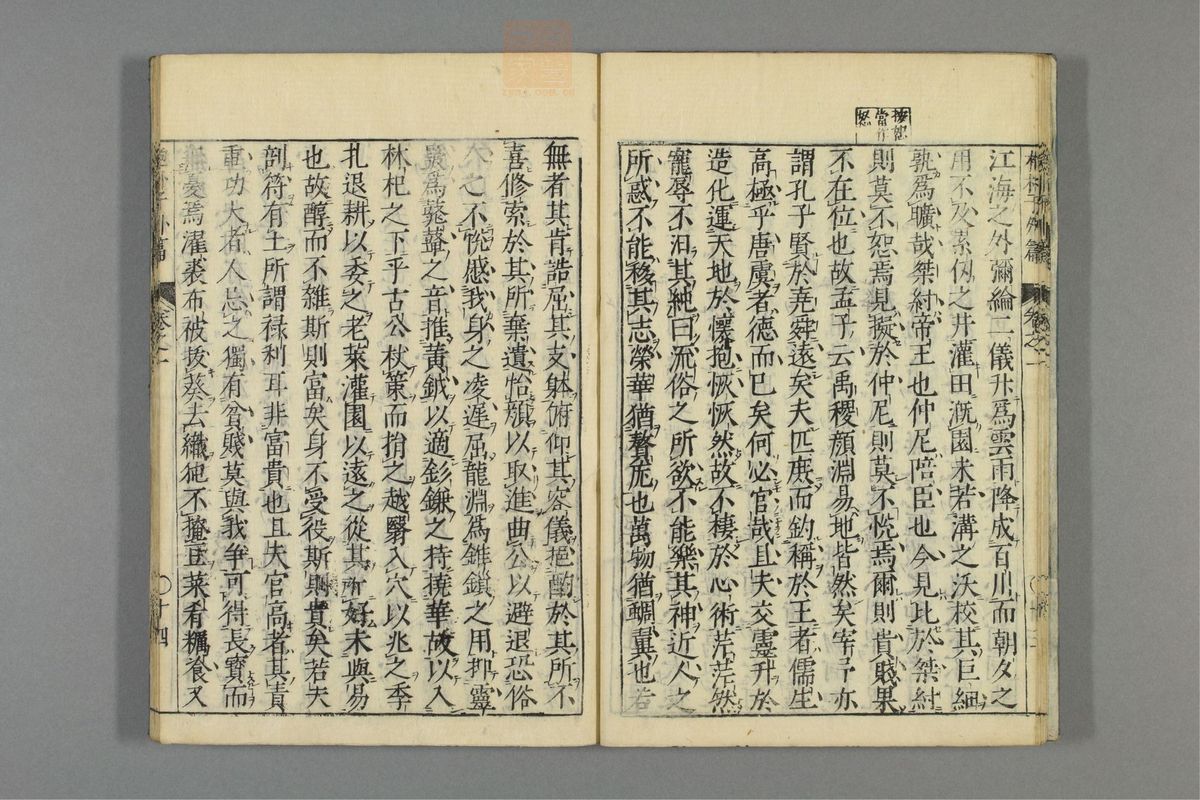 按恕
當作
怒
江海之外彌綸二儀升爲雲雨降成百川而朝夕之
用不及累仞之井灌田漑園未若溝之沃校其巨細
孰爲曠哉桀紂帝王也仲尼陪臣也今見比於桀紂
則莫不怨焉見擬於仲尼則莫不悅焉爾則貴賤果
不在位也故孟子云禹稷顏淵易地皆然矣宰予亦
謂孔子賢於堯舜遠矣夫匹庶而鈞稱於王者儒生
高極乎唐虞者德而已矣何必官哉且夫交靈升於
造化運天地於懷抱恢恢然故不棲於心術芒芒然
寵辱不汩其純曰流俗之所欲不能樂其神近人之
所惑不能移其志榮華猶贅疣也萬物猶蜩翼也若
無者其肯誥屈其支躰俯仰其容儀挹酌於其所不
喜修索於其所棄遺怡顏以取進曲公以避退恐俗
之不悅慼我身之凌遲屈龍淵爲錐鎖之用抑靈
鼖爲鼗鼙之音推黃鉞以適釤鎌之持撓華故以入
林杞之下乎古公杖策而捎之越翳入穴以兆之季
札退耕以委之老萊灌園以遠之從其所好未與易
也故醇而不雜斯則富矣身不受役斯則貴矣若夫
剖符有土所謂祿利耳非富貴也且夫官高者其責
重功大者人忌之獨有貧賤莫與我爭可得長寶而
無憂焉濯裘布被拔葵去織純不掩豆菜肴糲飡又
外篇
卷之一
〇十四